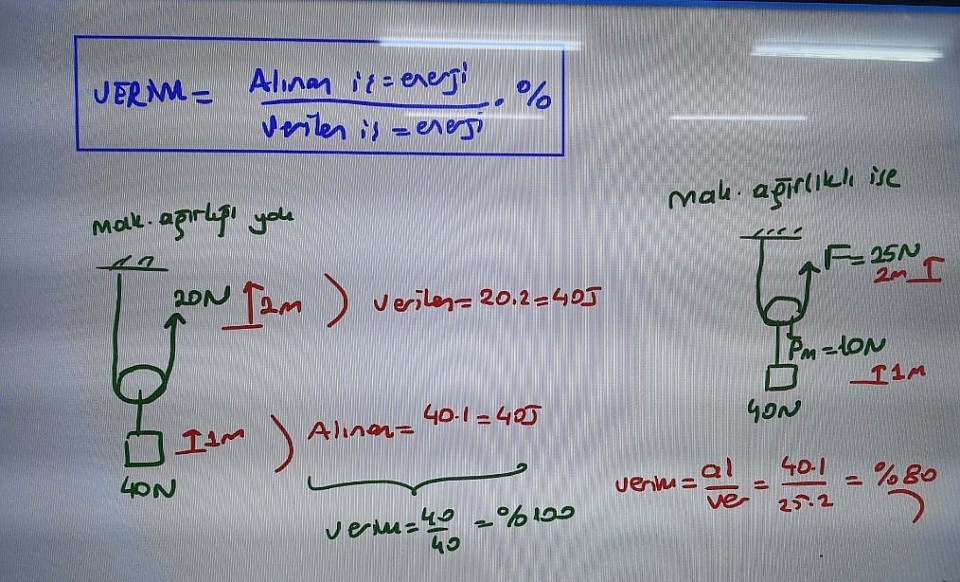 VERİM = Alınan iş = enerji / Verilen iş = enerji . %
mak. ağırlığı yok
20N 2m ) Verilen = 20.2 = 40J
1m ) Alınan = 40.1 = 40J
40N
verim = 40/40 = %100
mak. ağırlıklı ise
F = 25N
2m
PM = 10N
1m
40N
verim = al/ver = 40.1/25.2 = %80